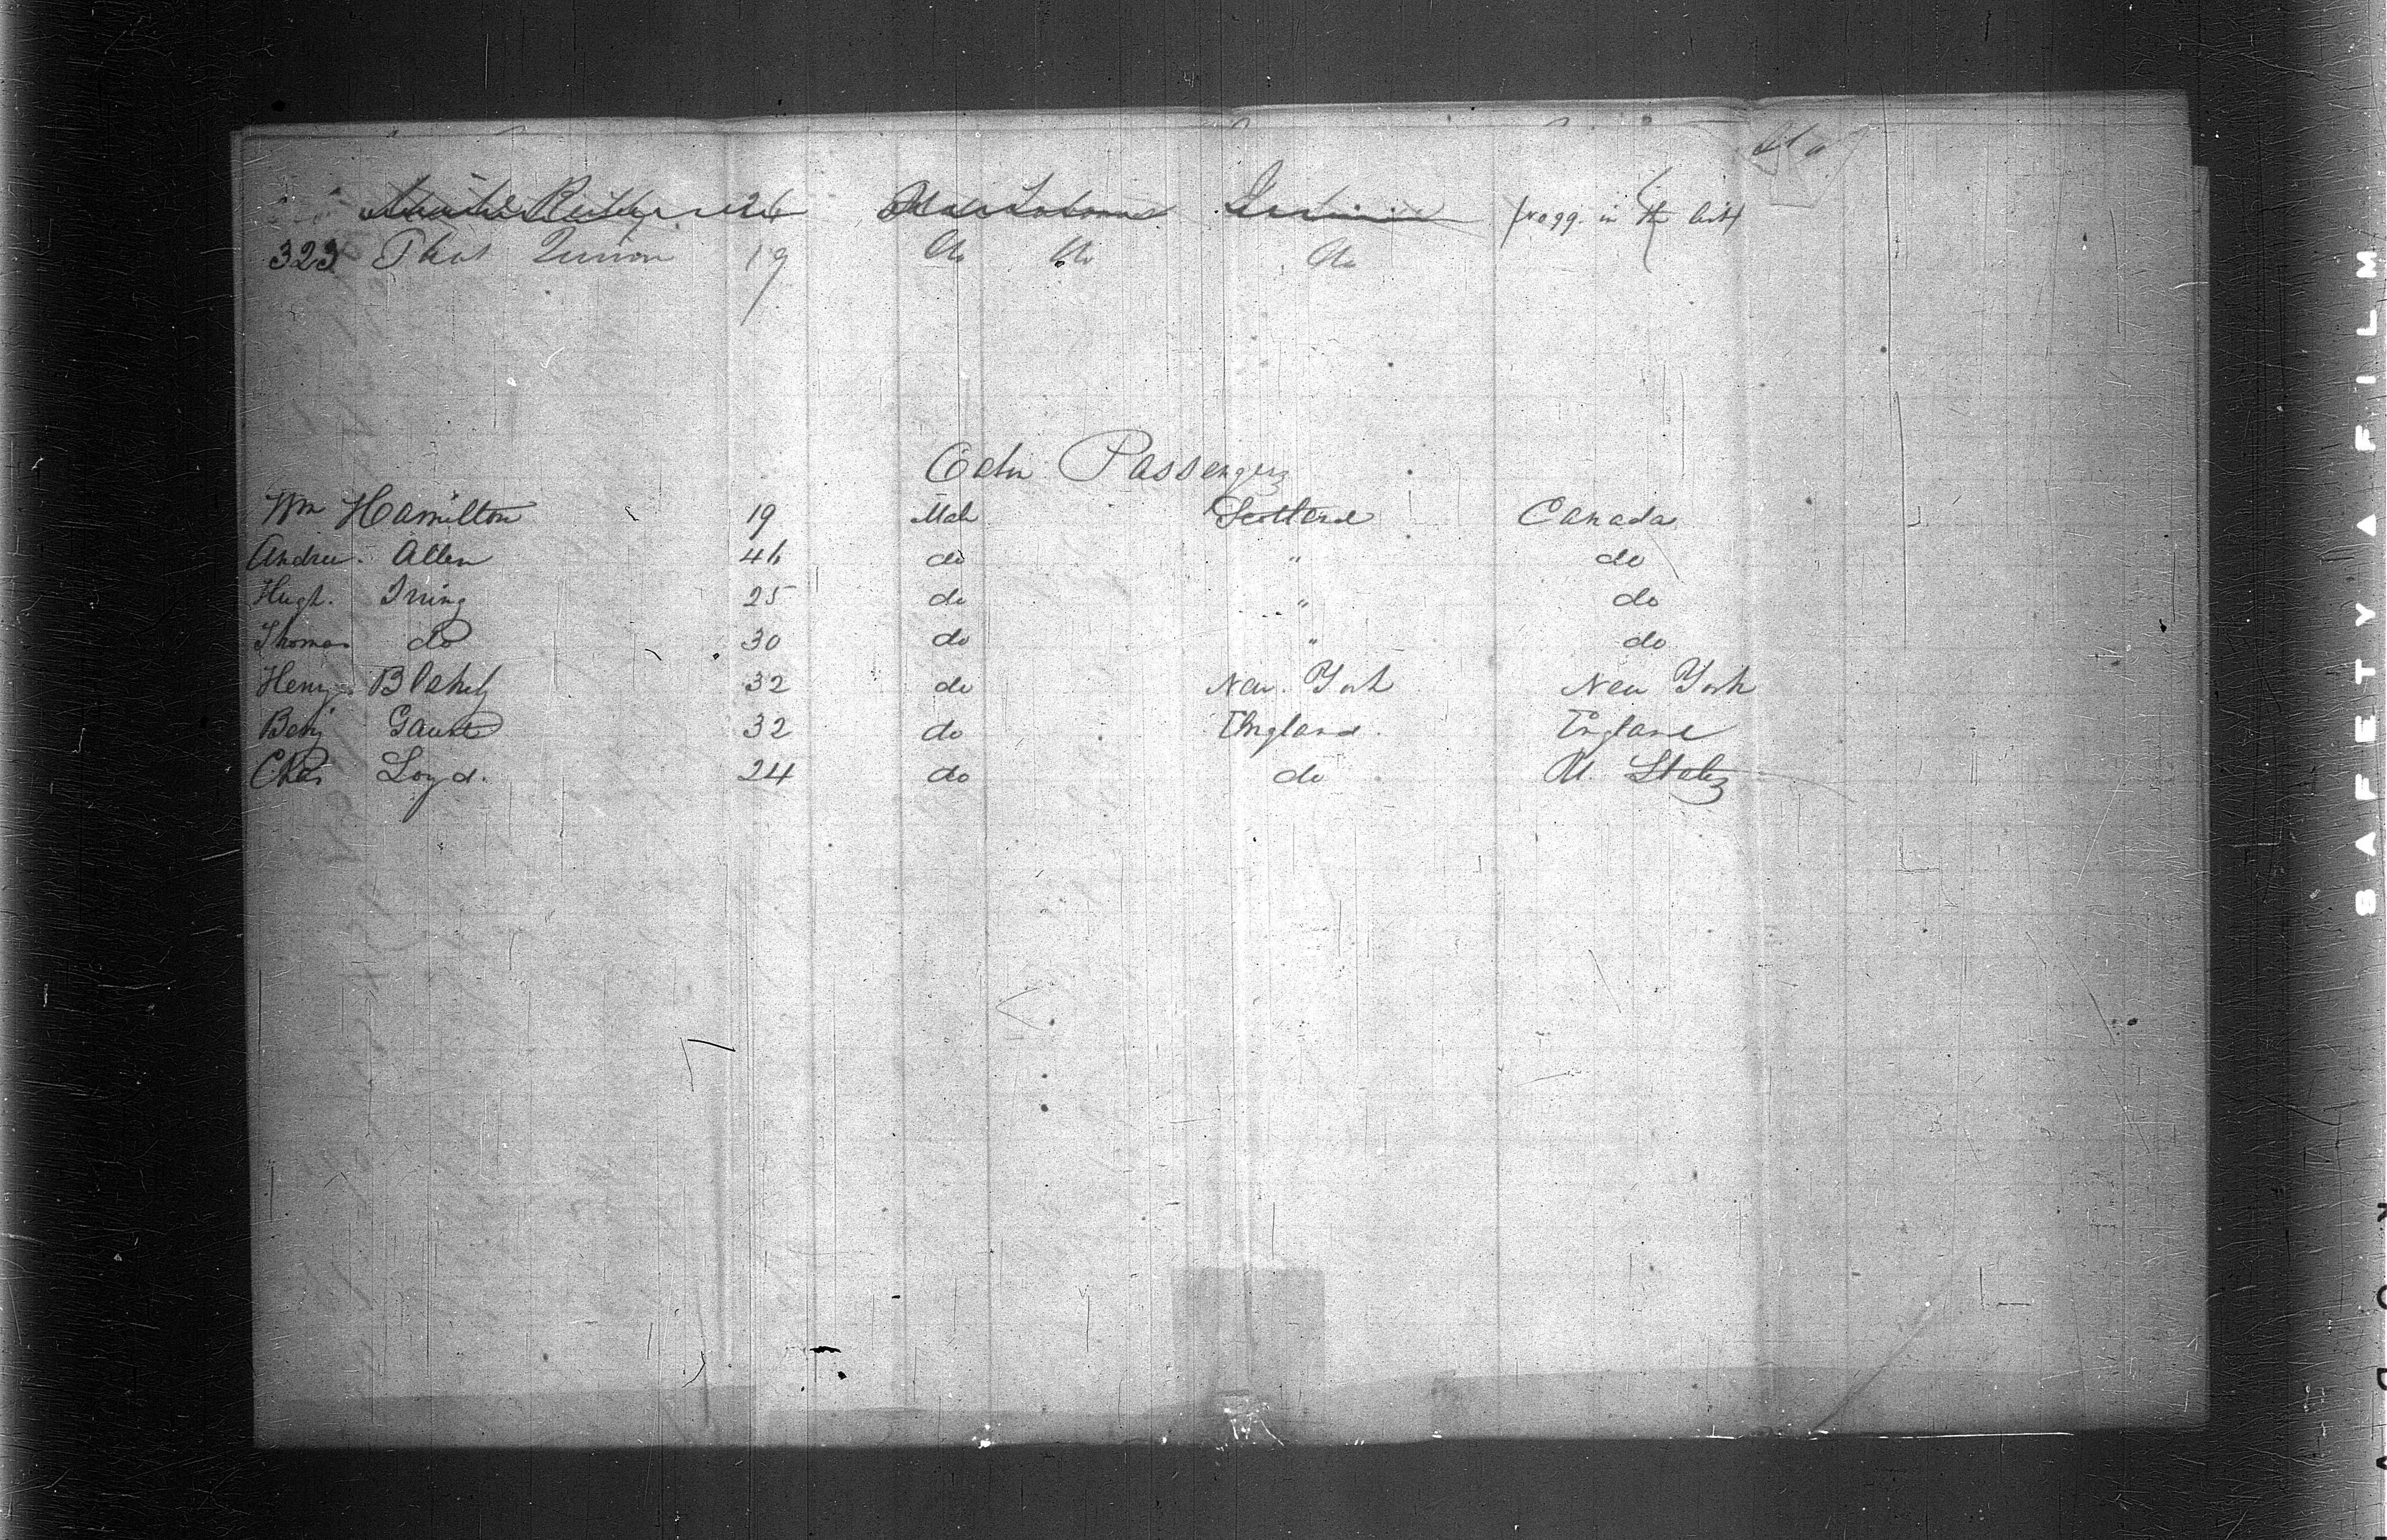 Reilly 26 Male
323 That Quinon 19 do do do
Cabin Passengers
Wm Hamilton 19 Male Scotland Canada
Andrew Allen 46 do " do
Hugh Irving 25 do " do
Thomas do 30 do " do
Henry Blakely 32 do New York New York
Benj Gault 32 do England England
Chas Loyd. 24 do do U. States
SAFETY FILM